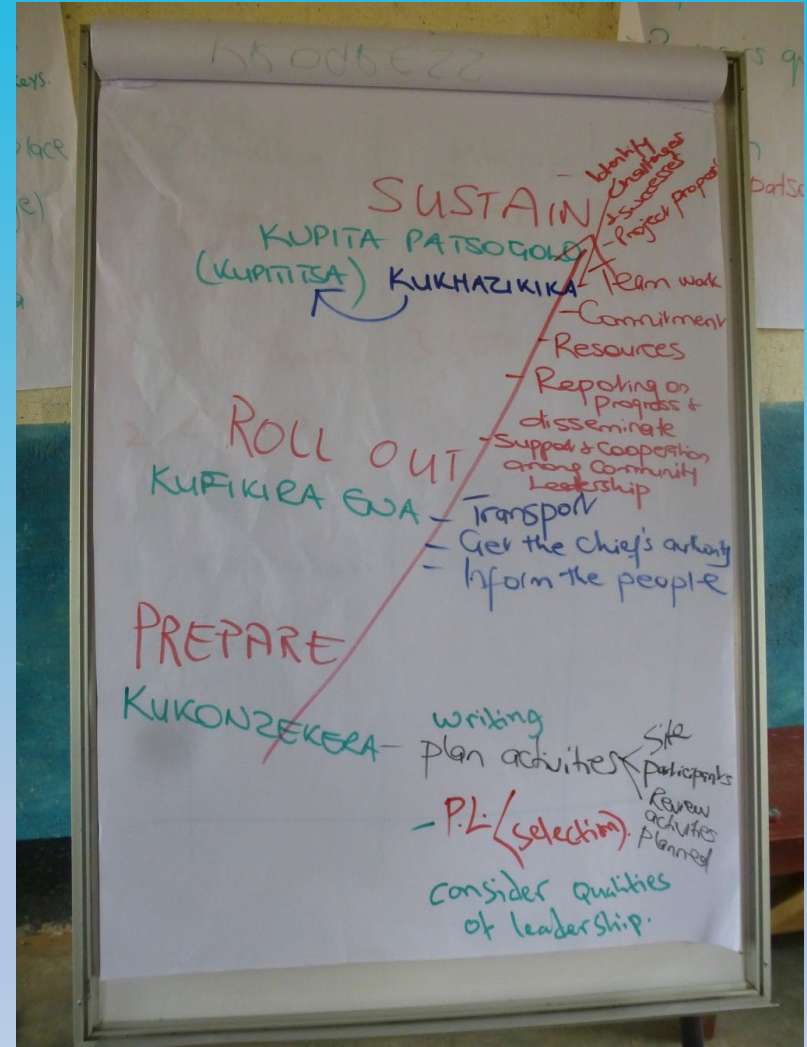 SUSTAIN
KUPITA PATSOGOLO
(KUPITITSA) KUKHAZIKIKA
- Identify
Challenges
& Successes
- Project
- Team work
- Commitment
- Resources
- Repoting on
progress &
disseminate
- Support & Cooperation
among Community
Leadership
ROLL OUT
KUFIKIRA ENA
- Transport
- Get the chief's
- Inform the people
PREPARE
KUKONZEKERA -
writing
plan activities
Site
participants
Review
activities
planned
- P.L. (selection).
consider qualities
of leadership.
eys.
place
e)
patso